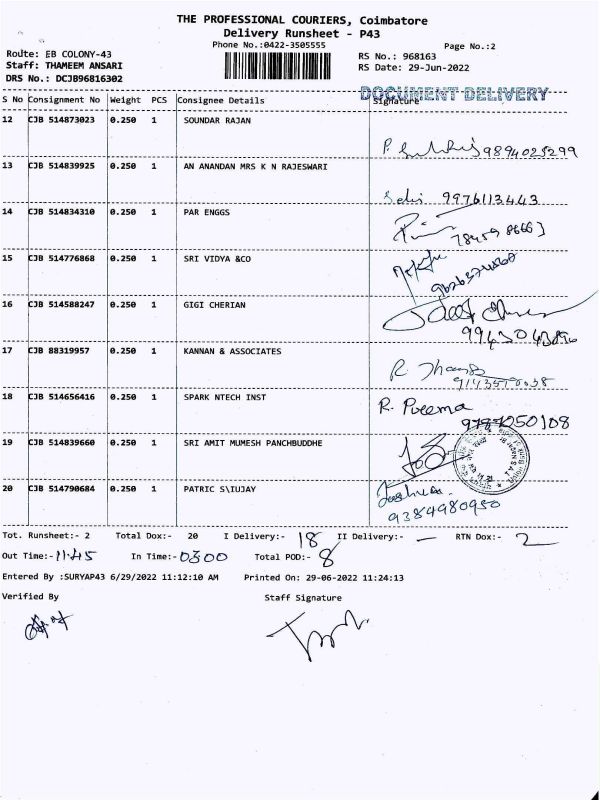 THE PROFESSIONAL COURIERS, Coimbatore
Delivery Runsheet - P43
Phone No.:0422-3505555
Page No.:2
Route: EB COLONY-43
RS No.: 968163
Staff: THAMEEM ANSARI
RS Date: 29-Jun-2022
DRS No.: DCJB96816302
DOCUMENT DELIVERY
S No Consignment No Weight PCS Consignee Details Signature
12 CJB 514873023 0.250 1 SOUNDAR RAJAN
9894025299
13 CJB 514839925 0.250 1 AN ANANDAN MRS K N RAJESWARI
Selvi 9976113443
14 CJB 514834310 0.250 1 PAR ENGGS
15 CJB 514776868 0.250 1 SRI VIDYA &CO
16 CJB 514588247 0.250 1 GIGI CHERIAN
17 CJB 88319957 0.250 1 KANNAN & ASSOCIATES
R.
18 CJB 514656416 0.250 1 SPARK NTECH INST
R. Preema
9787050108
19 CJB 514839660 0.250 1 SRI AMIT MUMESH PANCHBUDDHE
20 CJB 514790684 0.250 1 PATRIC S\IUJAY
Joshua
9384980950
Tot. Runsheet:- 2 Total Dox:- 20 I Delivery:- 18 II Delivery:- — RTN Dox:- 2
Out Time:- 11:45 In Time:- 0300 Total POD:- 8
Entered By :SURYAP43 6/29/2022 11:12:10 AM Printed On: 29-06-2022 11:24:13
Verified By Staff Signature